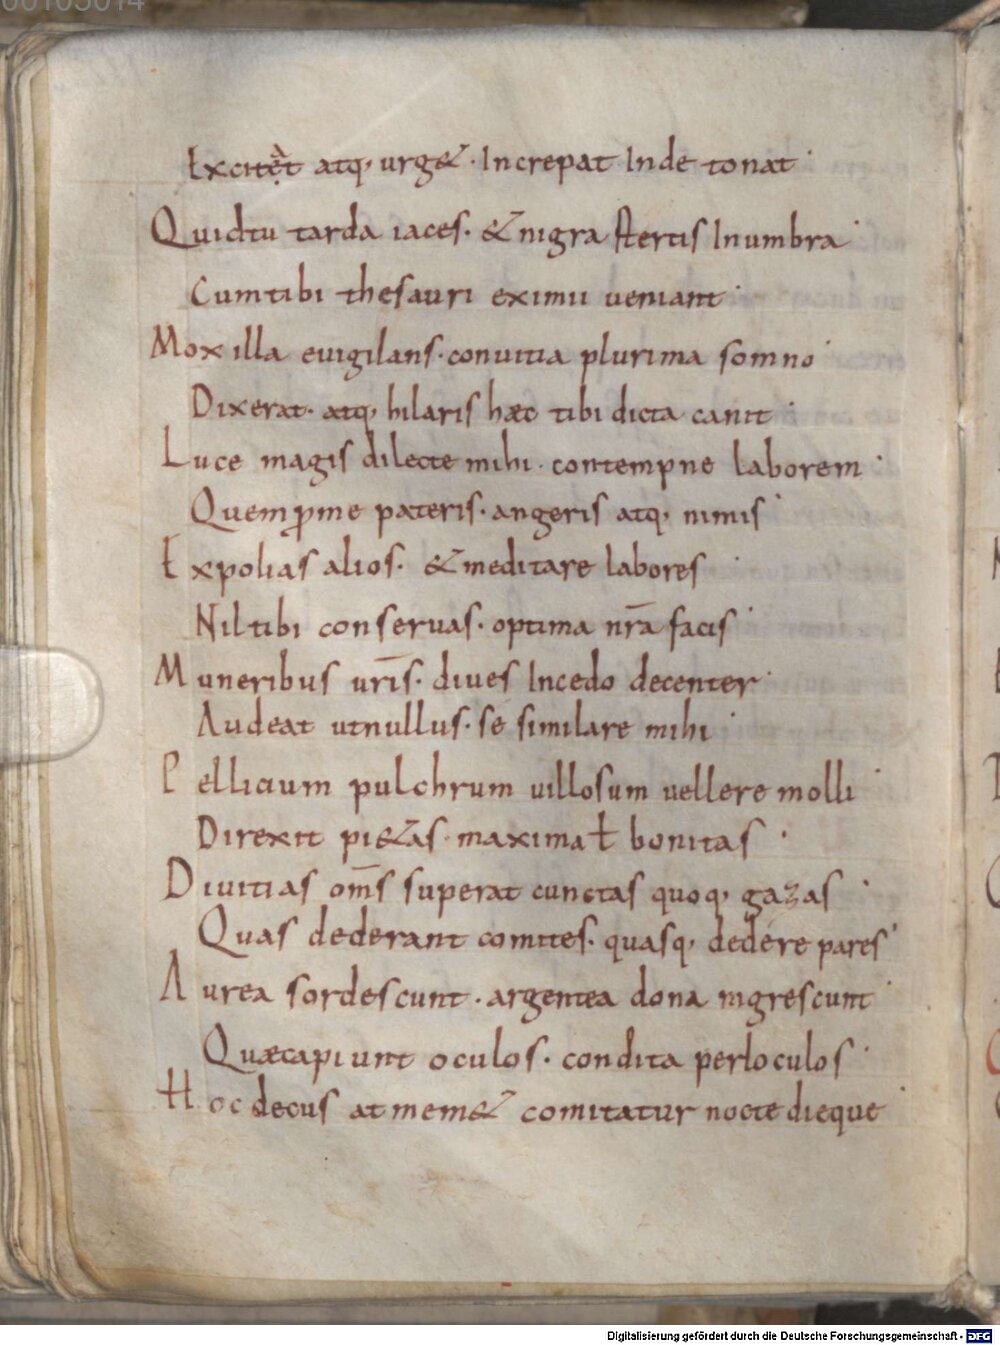 00105014
Excitẹàt atq; urg& · Increpat Inde tonat ·
Quidtu tarda iaces · & nigra stertis Inumbra ·
Cumtibi thesauri eximii ueniant ·
Mox illa euigilans · conuitia plurima somno ·
Dixerat · atq; hilaris hæc tibi dicta canit ·
Luce magis dilecte mihi · contempne laborem ·
Quem ꝓme pateris · angeris atq; nimis ·
Expolias alios · & meditare labores ·
Niltibi conseruas · optima nr̄a facis ·
Muneribus ur̄is · diues Incedo decenter ·
Audeat utnullus · se similare mihi ·
Pellicium pulchrum uillosum uellere molli ·
Direxit pi&as · maxima ł bonitas ·
Diuitias om̄s superat cunctas quoq; gazas ·
Quas dederant comites · quasq; dedere pares ·
Aurea sordescunt · argentea dona nigrescunt ·
Quæ capiunt oculos · condita perloculos ·
Hoc decus at mem& comitatur nocte dieque ·
Digitalisierung gefördert durch die Deutsche Forschungsgemeinschaft - DFG